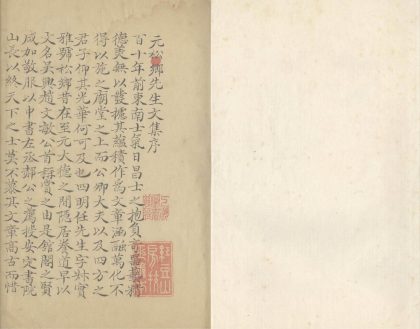 元松鄉先生文集序
百十年前東南士氣日昌士之抱負
德美無以發攄其蘊積作為文章涵融萬化不
得以施之廟堂之上而公卿大夫以及四方之
君子仰其光華何可及也四明任先生字叔實
雅號松鄉昔在至元大德之間隱居養道早以
文名吳興趙文敏公首謂賞之由是館閣之賢
咸加敬服以中書左丞郝公之薦授安定書院
山長以終天下之士莫不慕其文章高古而惜